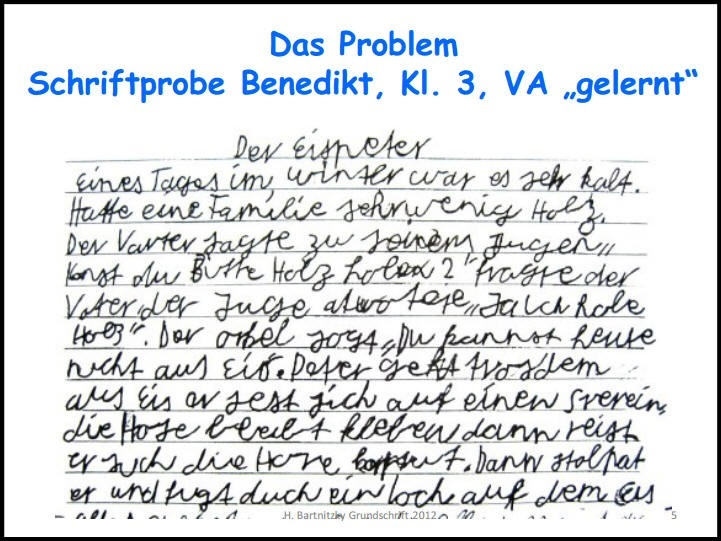 Das Problem
Schriftprobe Benedikt, Kl. 3, VA „gelernt“
Der Eispeter
Eines Tages im, winter war es sehr kalt.
Hatte eine Familie sehr wenig Holz.
Der Varter sagte zu seinem Jugen „
konst du Bitte Holz holen?" fragte der
Vater, der Juge atwortete „Ja ich hole
Holz". Der onkel sagt „Du kannst heute
nicht aus Eis. Peter geht trosdem
aufs Eis er sest sich auf einen
die Hose bleibt kleben dann reist
er sich die Hose kapput. Dann stolpat
er und durch ein loch auf dem Eis
H. Bartnitzky Grundschrift 2012
5